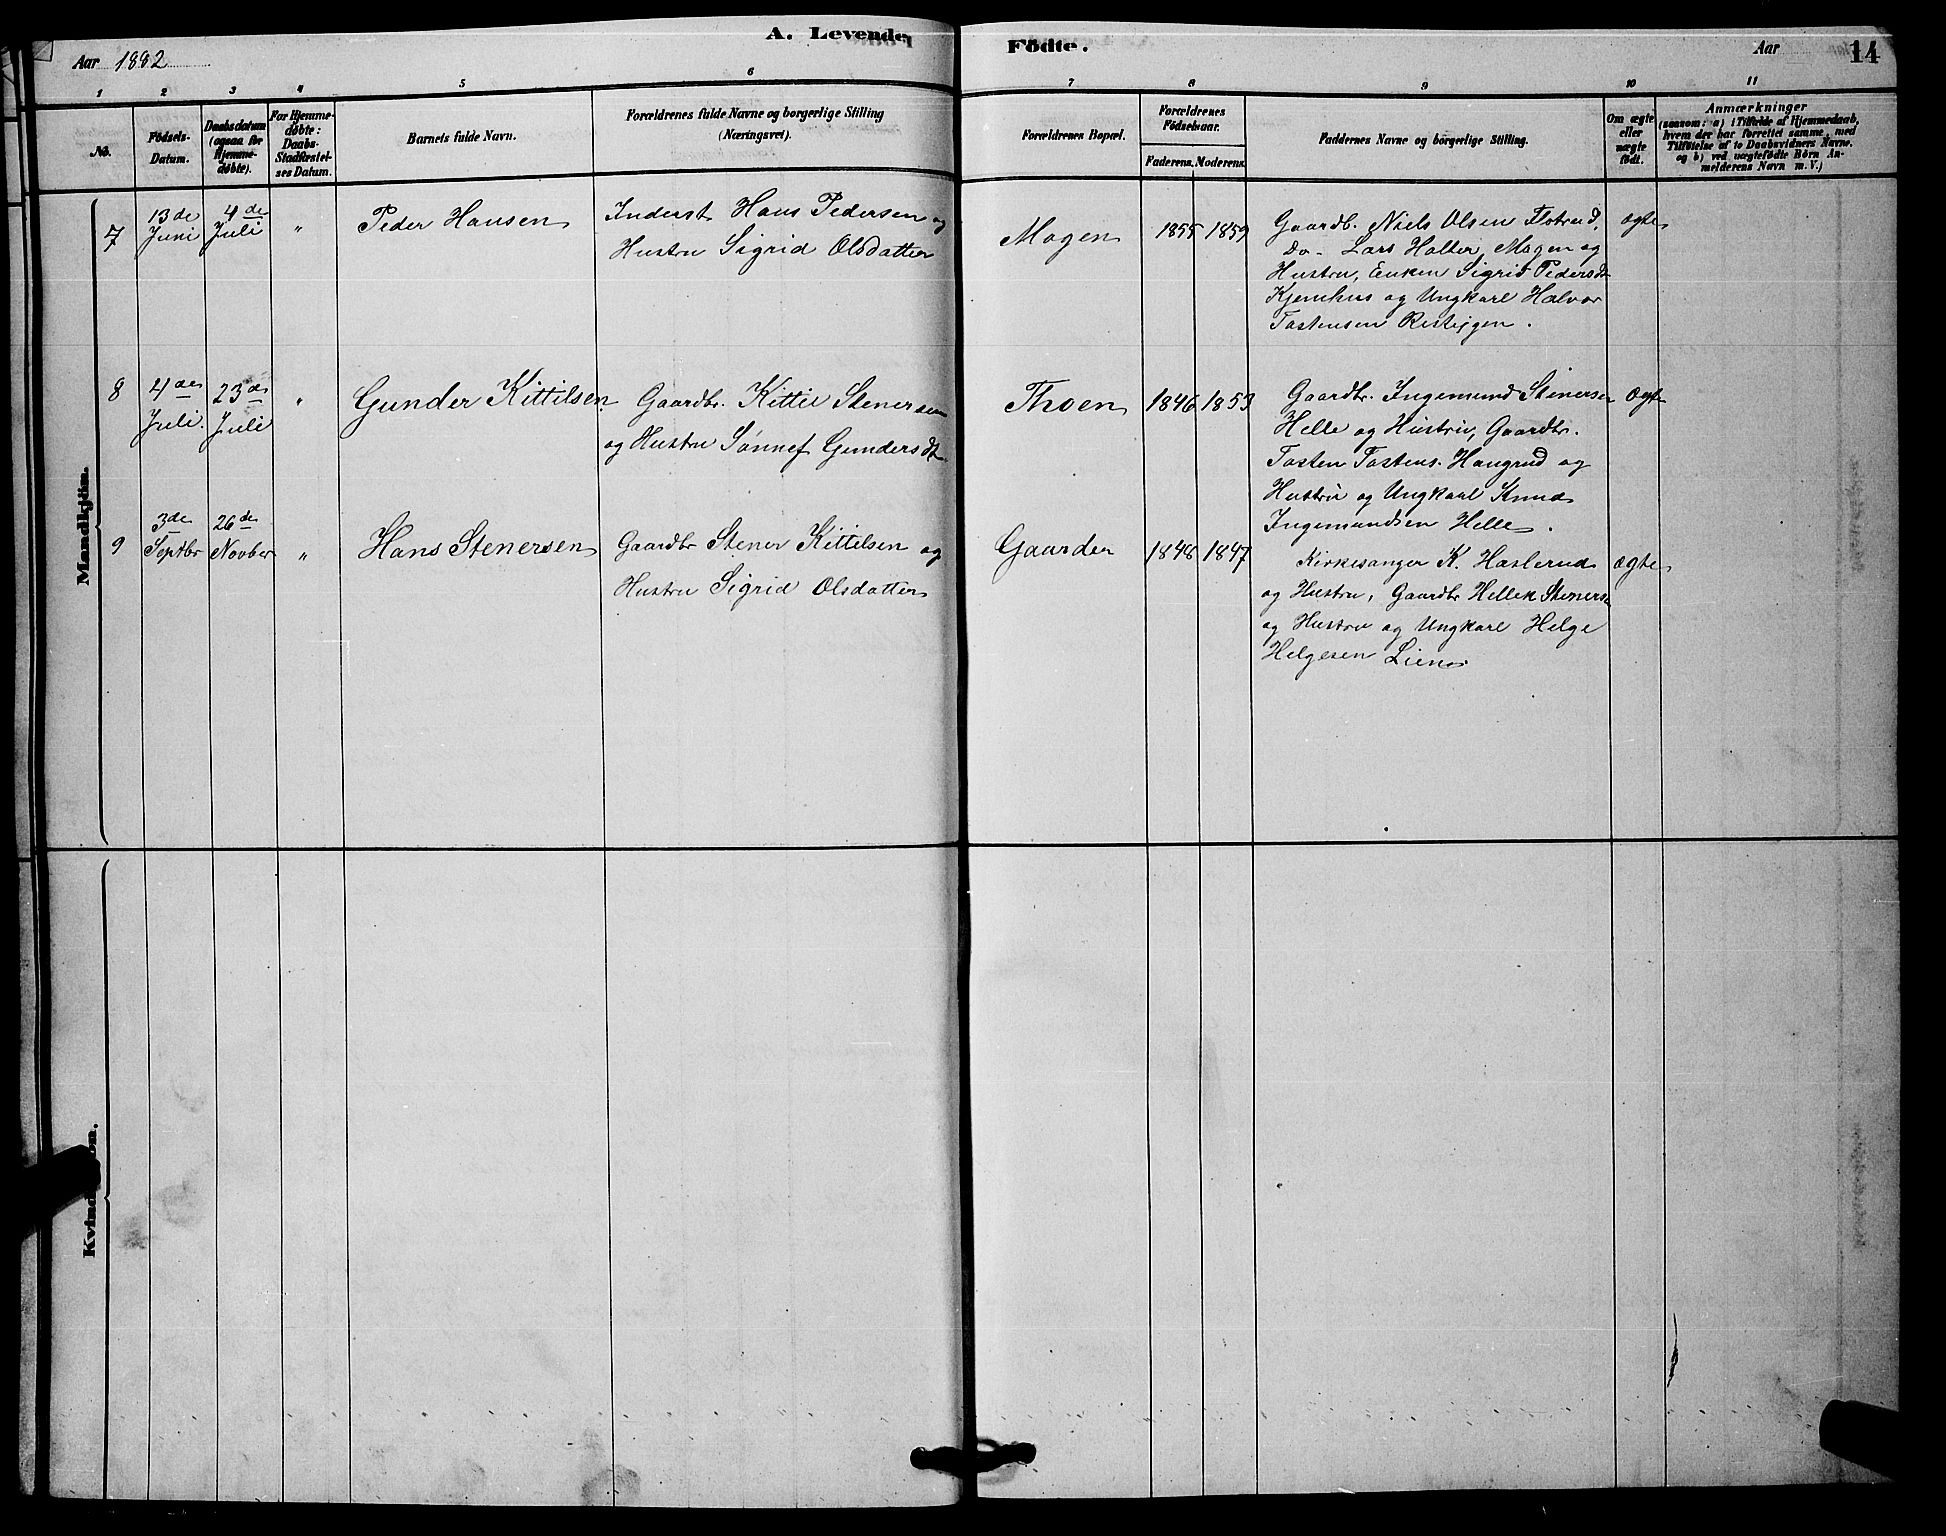 A. Levende
Födte.
Aar 1882
Aar
14
1 2 3 4 5 6 7 8 9 10 11
No.
Födsels-
Datum.
Daabsdatum
(ogsaa for
Hjemme-
døbte).
For Hjemme-
döbte:
Daabs-
Stadfæstel-
ses Datum.
Barnets fulde Navn.
Forældrenes fulde Navne og borgerlige Stilling
(Næringsvei).
Forældrenes Bopæl.
Forældrenes
Födselsaar.
Faderens. Moderens.
Faddernes Navne og borgerlige Stilling.
Om ægte
eller
uægte
födt.
Anmærkninger
(saasom: a) i Tilfælde af Hjemmedaab,
hvem der har forrettet samme, med
Tilföielse af to Daabsvidners Navne.
og b) ved uægtefödte Börn An-
melderens Navn m. V.)
Mandkjön.
7
13de
Juni
4de
Juli
"
Peder Hansen
Inderst Hans Pedersen og
Hustru Sigrid Olsdatter
Mogen
1855 1859
Gaardb. Niels Olsen Flotrud,
Do- Lars Halter Mogen og
Hustru, Enken Sigrid Pedersdt
Kjemhus og Ungkarl Halvor
Tostensen Risteigen.
ægte
8
4de
Juli.
23de
Juli
"
Gunder Kittilsen
Gaardbr. Kittil Stenersen
og Hustru Sønnef Gundersdt.
Thoen
1846 1853
Gaardbr. Ingemund Stenersen
Helle og Hustru, Gaardbr.
Tosten Tostens. Haugrud og
Hustru og Ungkarl Knud
Ingemundsen Helle.
ægte
9
3de
Septbr
26de
Novber
"
Hans Stenersen
Gaardbr Stener Kittilsen og
Hustru Sigrid Olsdatter
Gaarder
1848 1847
Kirkesanger K. Haslerud
og Hustru, Gaardbr Hellek Stenersen
og Hustru og Ungkarl Helge
Helgesen Lien.
ægte